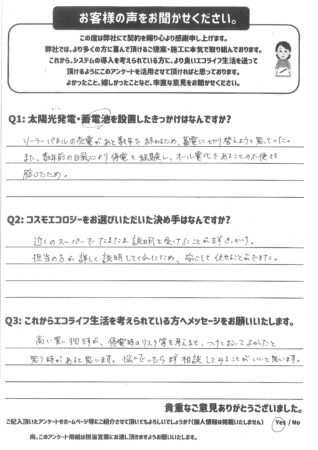 お客様の声をお聞かせください。
この度は弊社にて契約を賜り心より感謝申し上げます。
弊社では、より多くの方に喜んで頂けるご提案・施工に本気で取り組んでおります。
これから、システムの導入を考えられている方に、より良いエコライフ生活を送って
頂けるようにこのアンケートを活用させて頂ければと思っております。
よかったこと、嬉しかったことなど、率直な意見をお聞かせください。
Q1: 太陽光発電・蓄電池を設置したきっかけはなんですか?
ソーラーパネルの売電があと数年で終わるため、蓄電に切り替えようと思っていた。
また、数年前の台風により停電を経験し、オール電化であることの不便さを
感じたため。
Q2: コスモエコロジーをお選びいただいた決め手はなんですか?
近くのスーパーでたまたま説明を受けたことがきっかけ。
担当の方が詳しく説明してくれたため、安心して任せることができた。
Q3: これからエコライフ生活を考えられている方へメッセージをお願いいたします。
高い買い物だが、停電時のリスク等を考えると、つけておいてよかったと
思う時があると思います。悩んでいたらまず相談してみることがいいと思います。
貴重なご意見ありがとうございました。
ご記入頂いたアンケートをホームページ等にご紹介させて頂いてもよろしいでしょうか?(個人情報は掲載いたしません) Yes / No
尚、このアンケート用紙は担当営業にお渡し頂きますようお願いいたします。